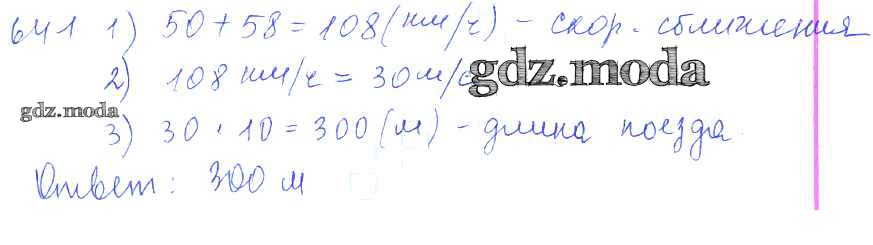 641 1) 50 + 58 = 108 (км/ч) - скор. сближения
2) 108 км/ч = 30 м/с
gdz.moda
gdz.moda
3) 30 · 10 = 300 (м) - длина поезда.
Ответ: 300 м